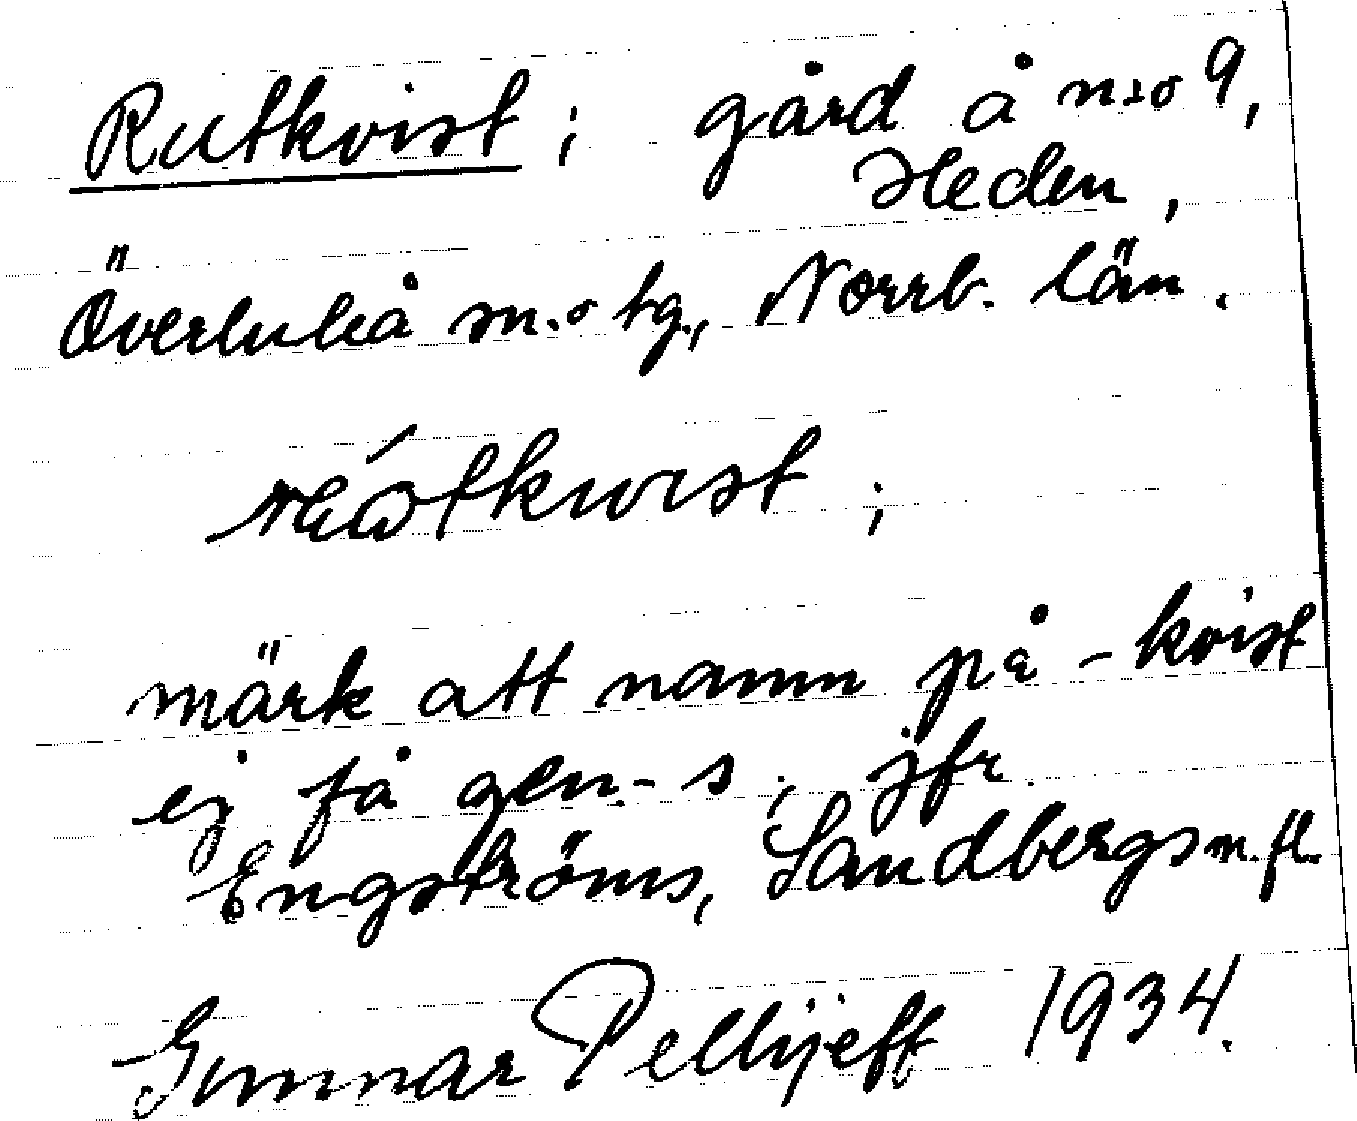 Rutkvist; gård å n:o 9,
Heden,
Överluleå sn. o tg., Norrb. län.
märk att namn på -kvist
ej få gen.- s; jfr
Engströms, Sandbergs m.fl.
Gunnar Pellijeff 1934.